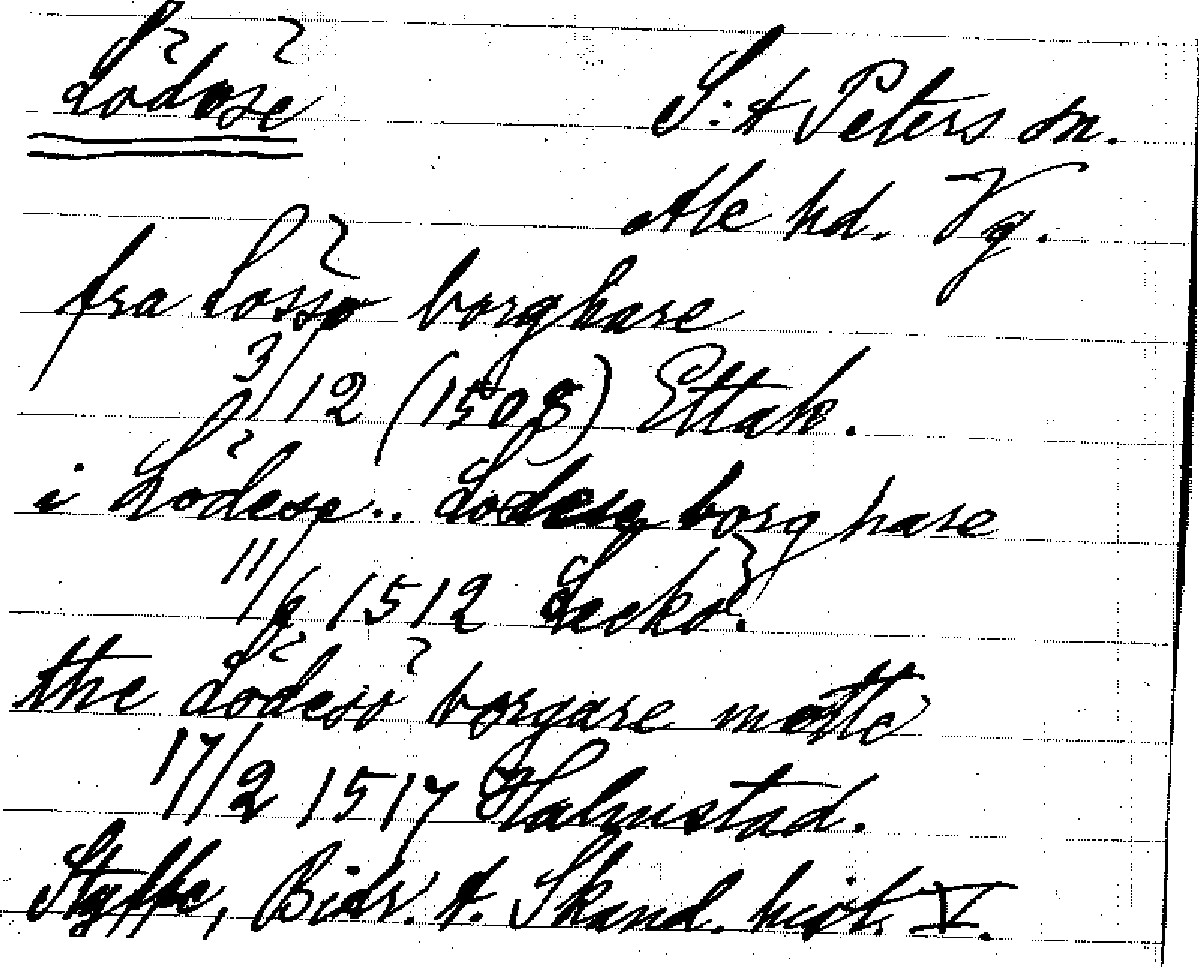 Lödöse
S:t Peters sn.
Ale hd. Vg.
fra Lossö borghare
3/12 (1508) Ettak.
i Lödese.. Lodese borghare
11/6 1512 Leckö.
the Lödesö borgare motte
17/2 1517 Halmstad.
Styffe, Bidr. t. Skand. hist. V.